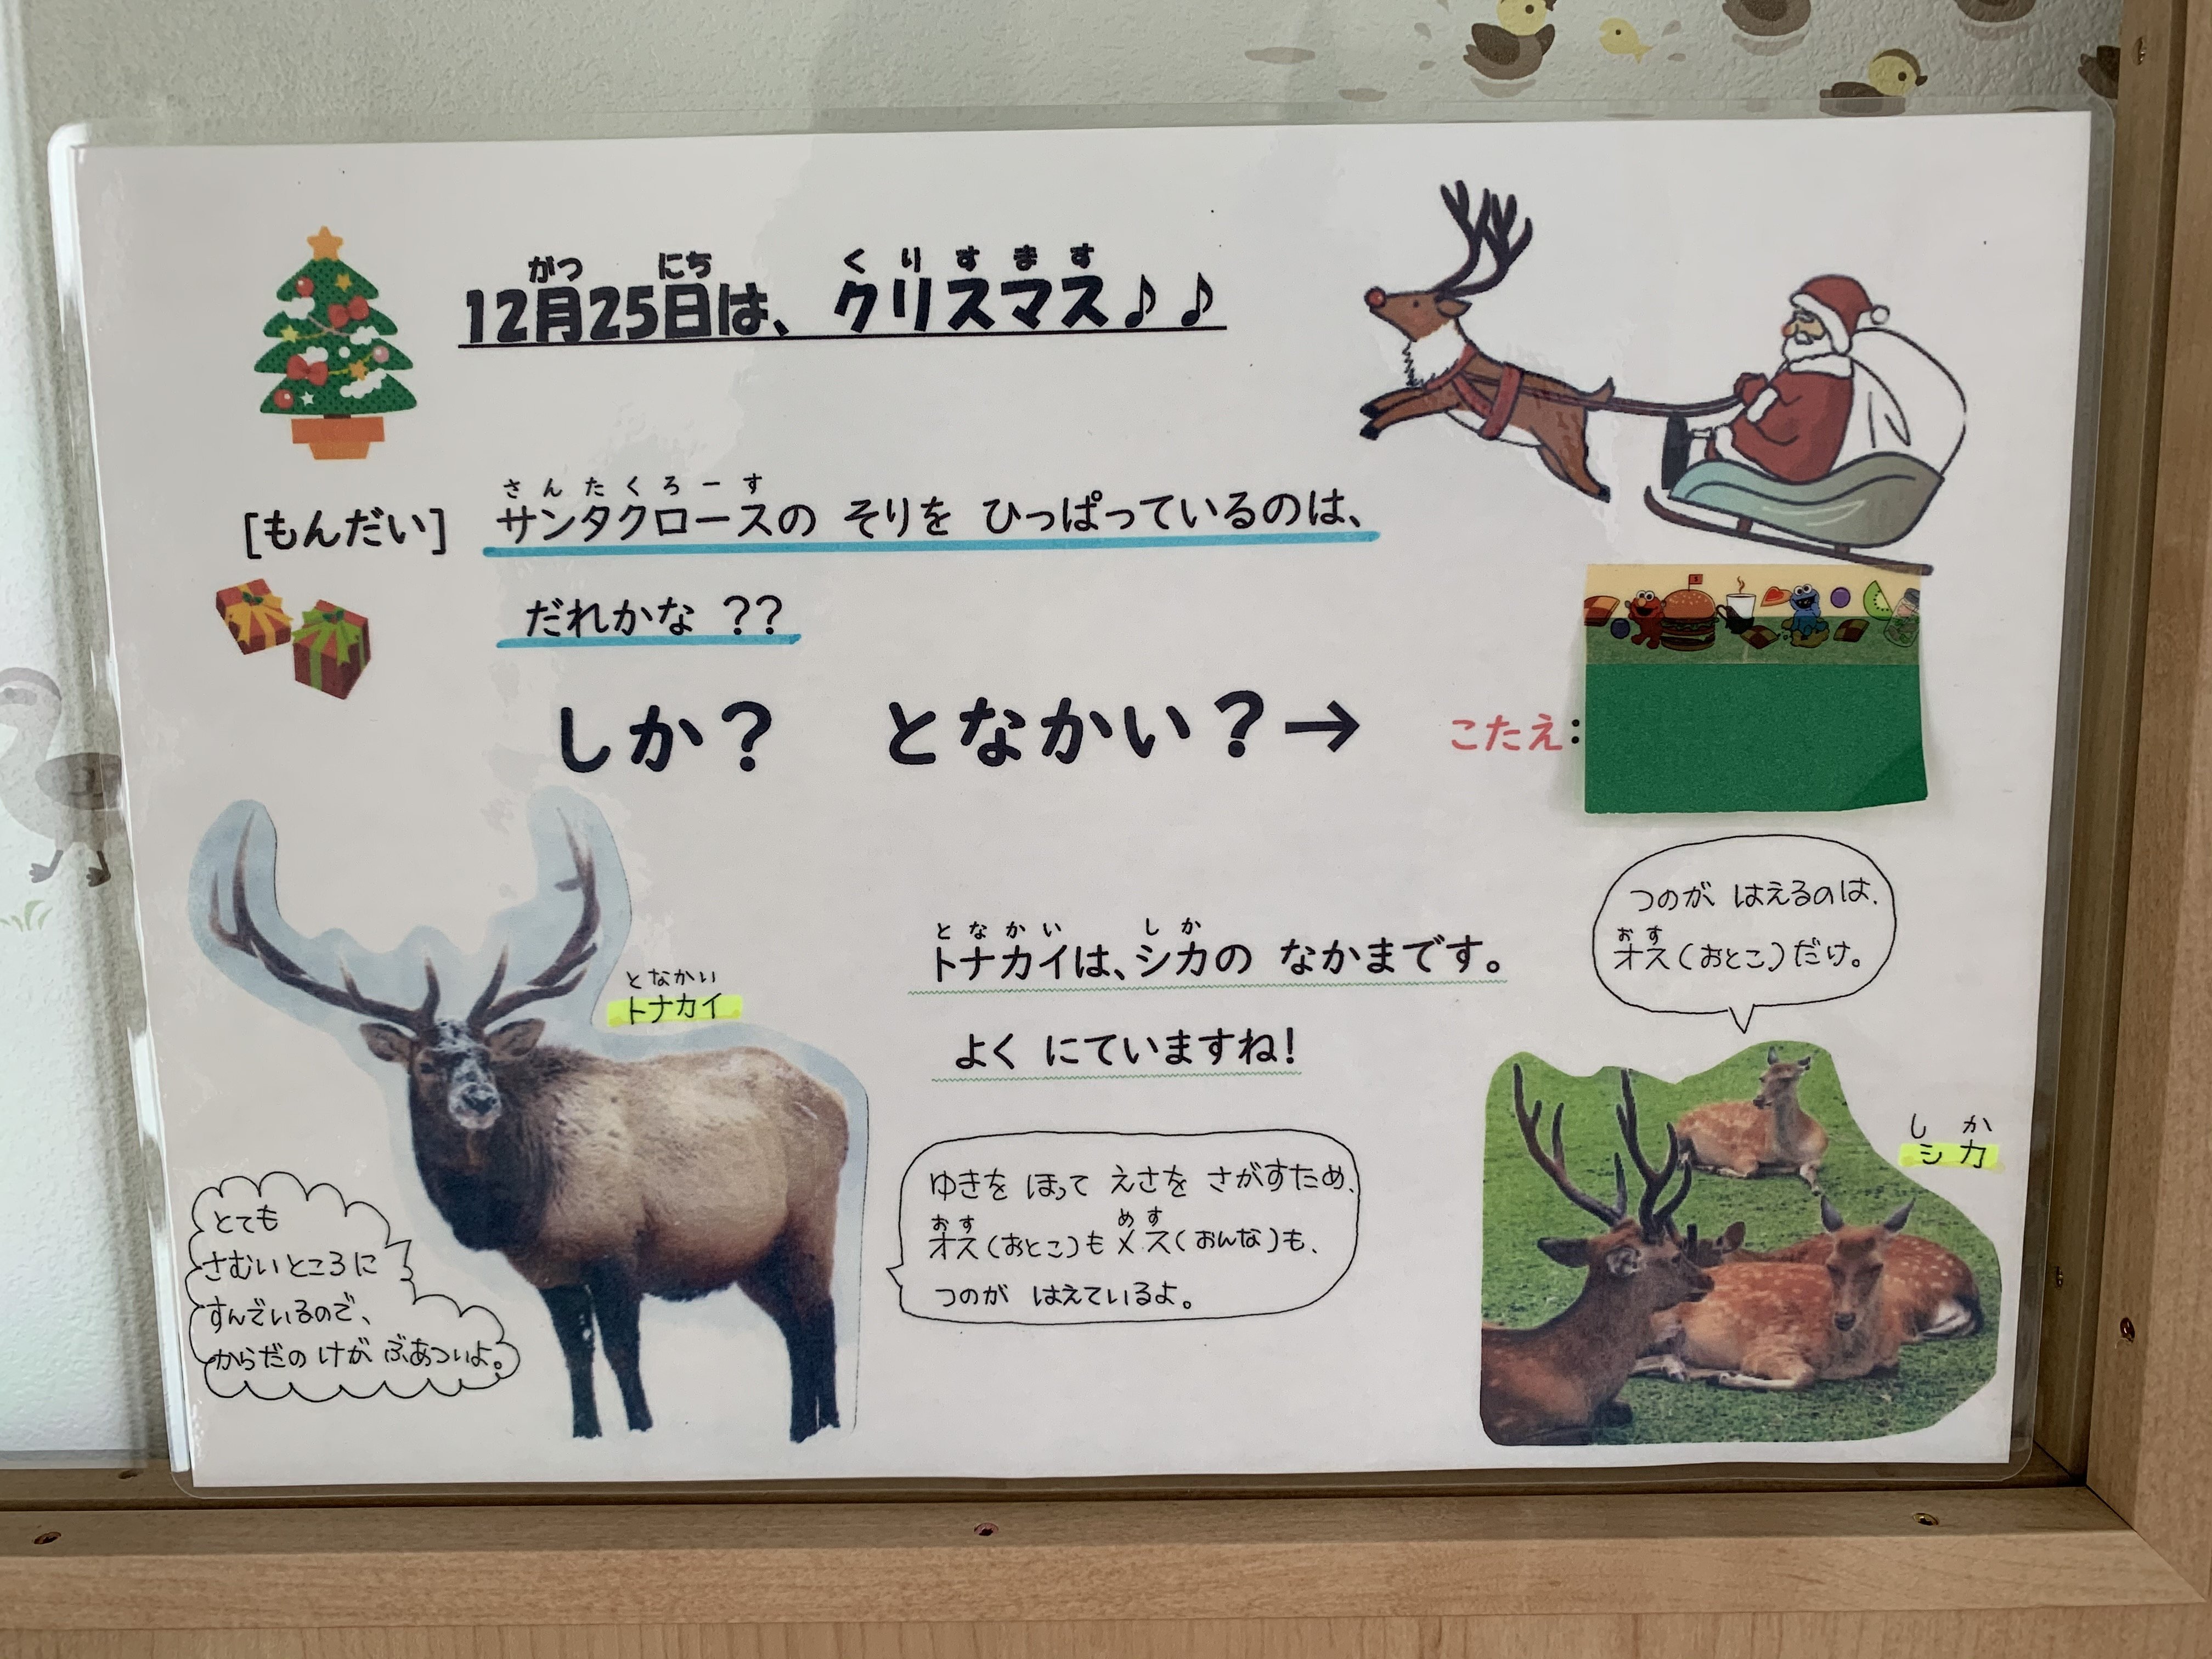 がつ にち くりすます
12月25日は、クリスマス♪♪
さんたくろーす
[もんだい] サンタクロースの そりを ひっぱっているのは、
だれかな ??
しか? となかい?→ こたえ:
となかい しか
トナカイは、シカの なかまです。
よく にていますね!
となかい
トナカイ
とても
さむいところに
すんでいるので、
からだの けが ぶあついよ。
ゆきを ほって えさを さがすため、
おす めす
オス(おとこ)も メス(おんな)も、
つのが はえているよ。
つのが はえるのは、
おす
オス(おとこ)だけ。
しか
シカ